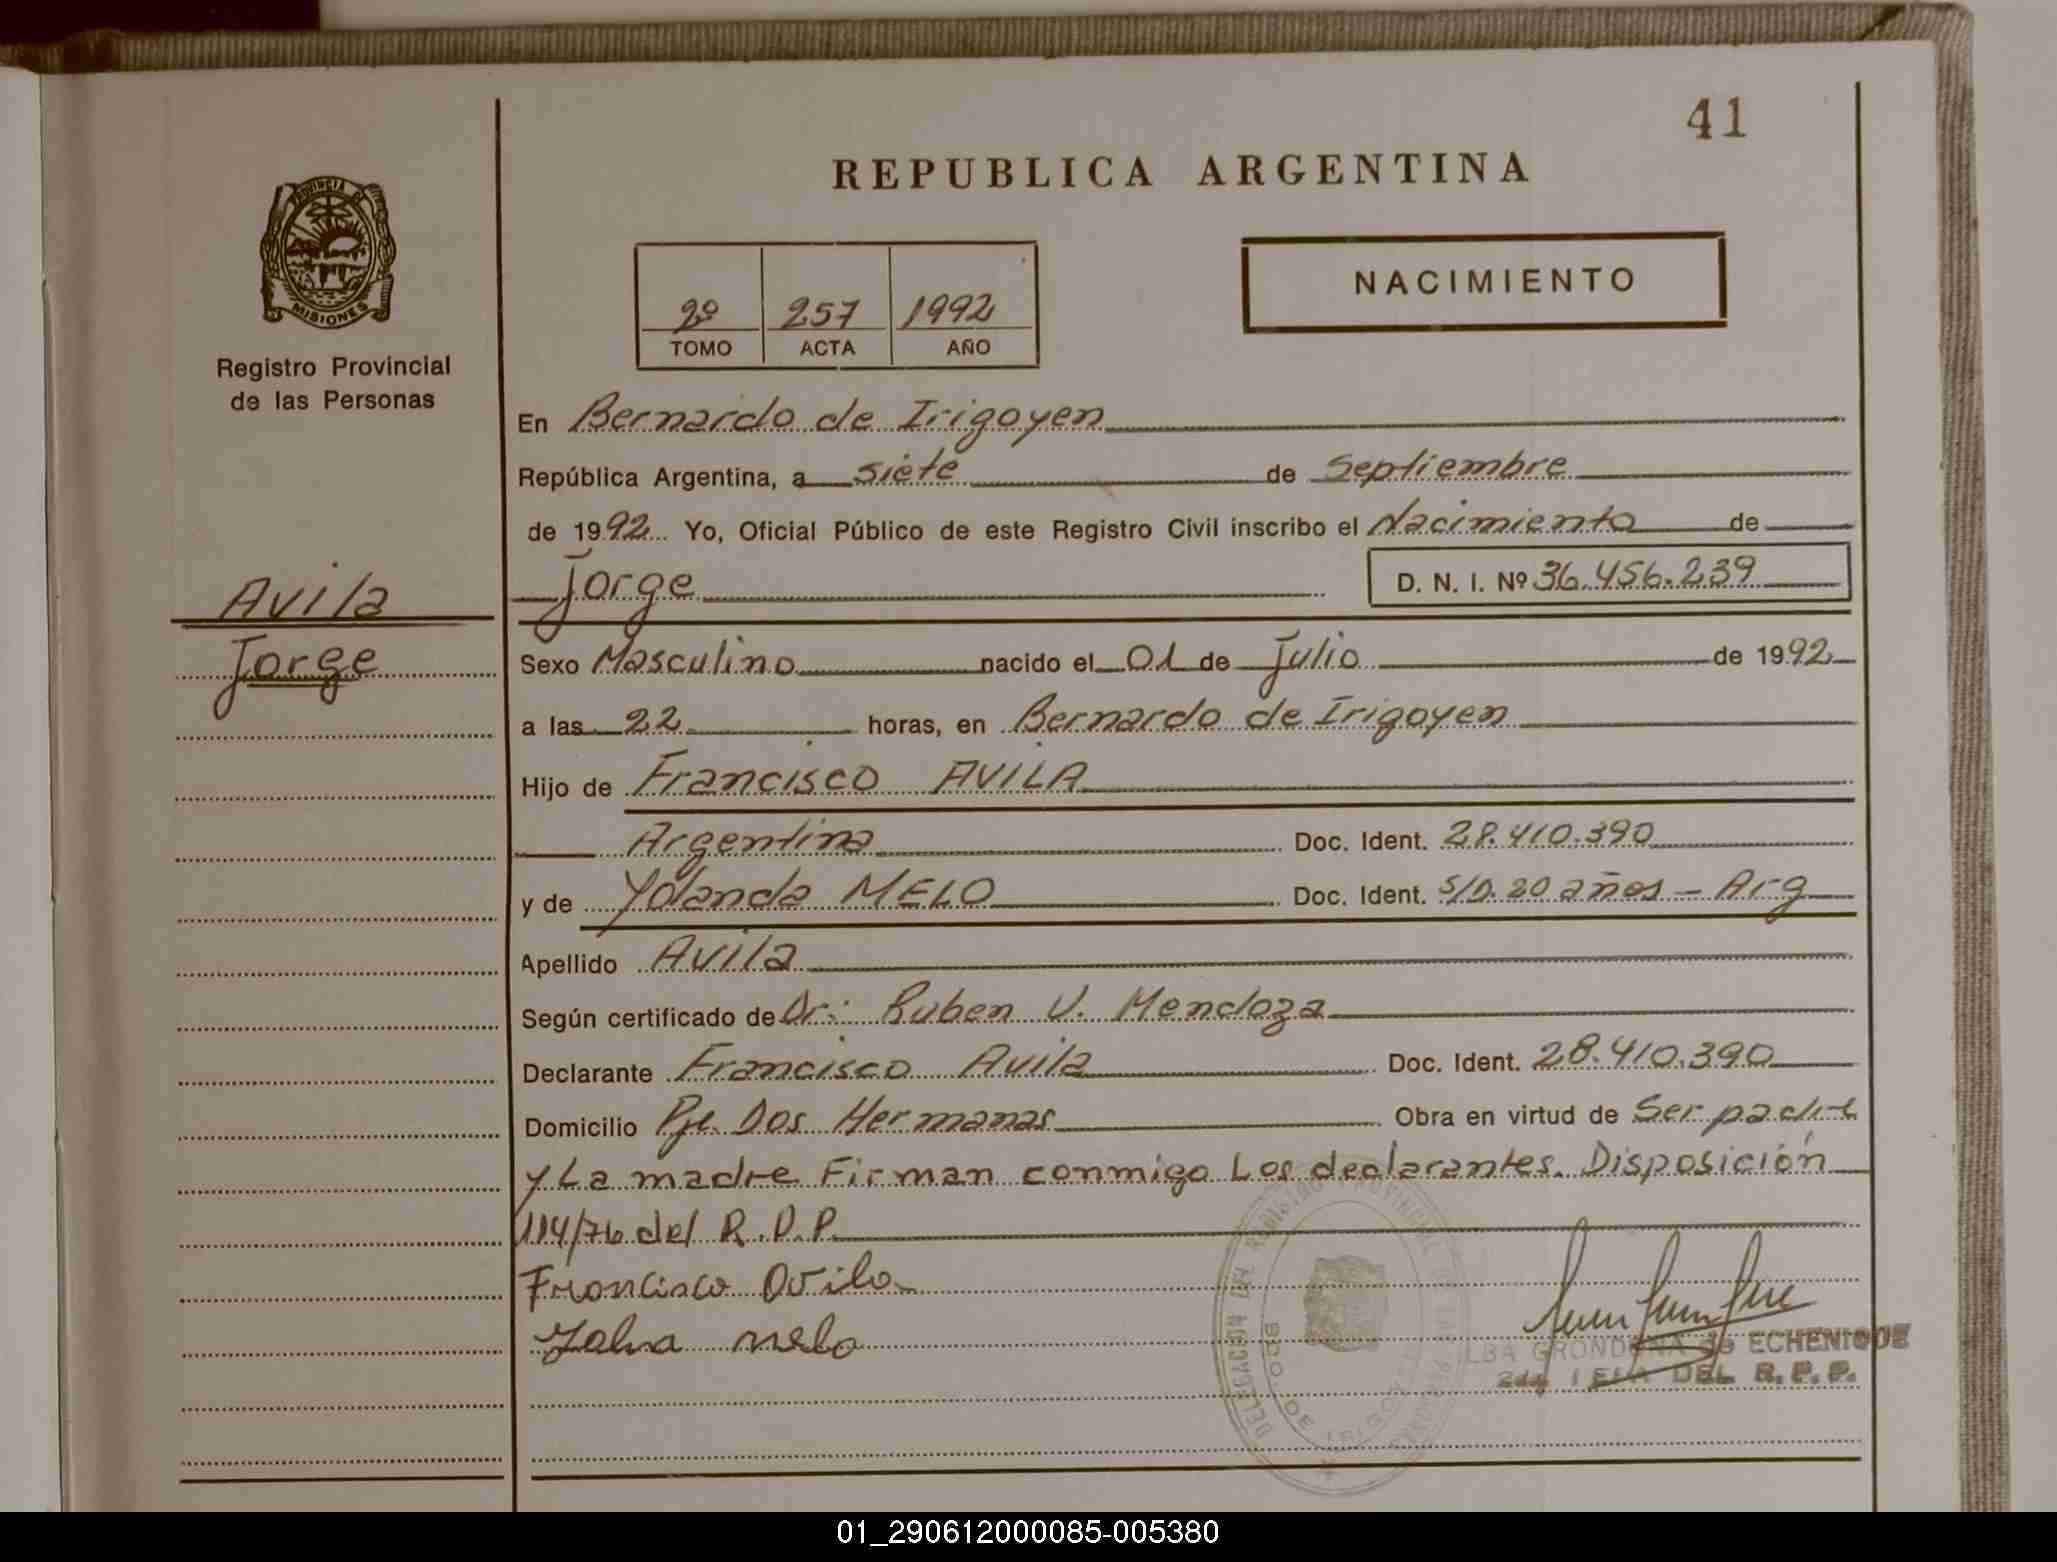 41
REPUBLICA ARGENTINA
PROVINCIA DE
MISIONES
Registro Provincial
de las Personas
2º 257 1992
TOMO ACTA AÑO
NACIMIENTO
En Bernardo de Irigoyen
República Argentina, a siete de Septiembre
de 1992 Yo, Oficial Público de este Registro Civil inscribo el Nacimiento de
Jorge D. N. I. Nº 36.456.239
Avila
Jorge
Sexo Masculino nacido el 01 de Julio de 1992
a las 22 horas, en Bernardo de Irigoyen
Hijo de Francisco AVILA
Argentina Doc. Ident. 28.410.390
y de Yolanda MELO Doc. Ident. S/D. 20 años - Arg
Apellido Avila
Según certificado de Dr: Ruben V. Mendoza
Declarante Francisco Avila Doc. Ident. 28.410.390
Domicilio Pje. Dos Hermanas Obra en virtud de Ser padre
y La madre Firman conmigo Los declarantes. Disposición
114/76 del R.D.P.
Francisco Avila
Melo
DELEGACION DEL REGISTRO PROVINCIAL DE LAS PERSONAS
BDO. DE IRIGOYEN
ALBA GRONDONA de ECHENIQUE
DEL R.P.P.
01_290612000085-005380